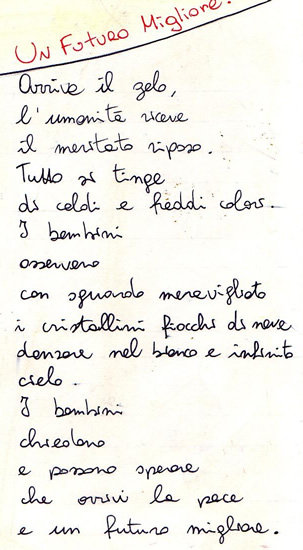 Un Futuro Migliore.
Arriva il gelo,
l'umanità riceve
il meritato riposo.
Tutto si tinge
di caldi e freddi colori.
I bambini
osservano
con sguardo meravigliato
i cristallini fiocchi di neve
danzare nel bianco e infinito
cielo.
I bambini
chiedono
e possono sperare
che arrivi la pace
e un futuro migliore.